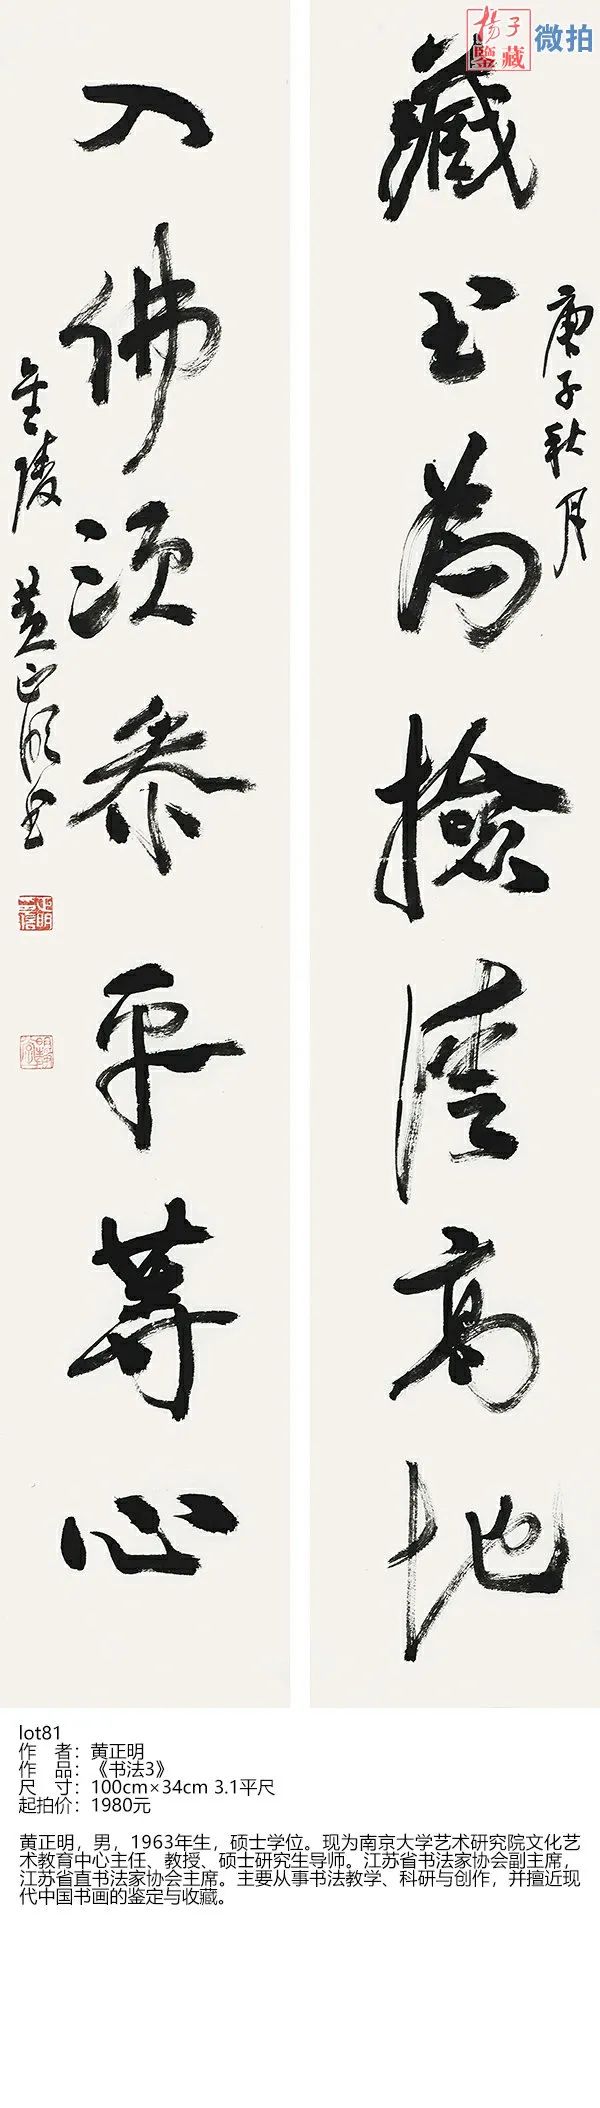 杨子
鉴藏
微拍
藏书为捡清高地
庚子秋月
入佛须参平等心
金陵
黄正明书
lot81
作 者：黄正明
作 品：《书法3》
尺 寸：100cm×34cm 3.1平尺
起拍价：1980元
黄正明，男，1963年生，硕士学位。现为南京大学艺术研究院文化艺
术教育中心主任、教授、硕士研究生导师。江苏省书法家协会副主席，
江苏省直书法家协会主席。主要从事书法教学、科研与创作，并擅近现
代中国书画的鉴定与收藏。